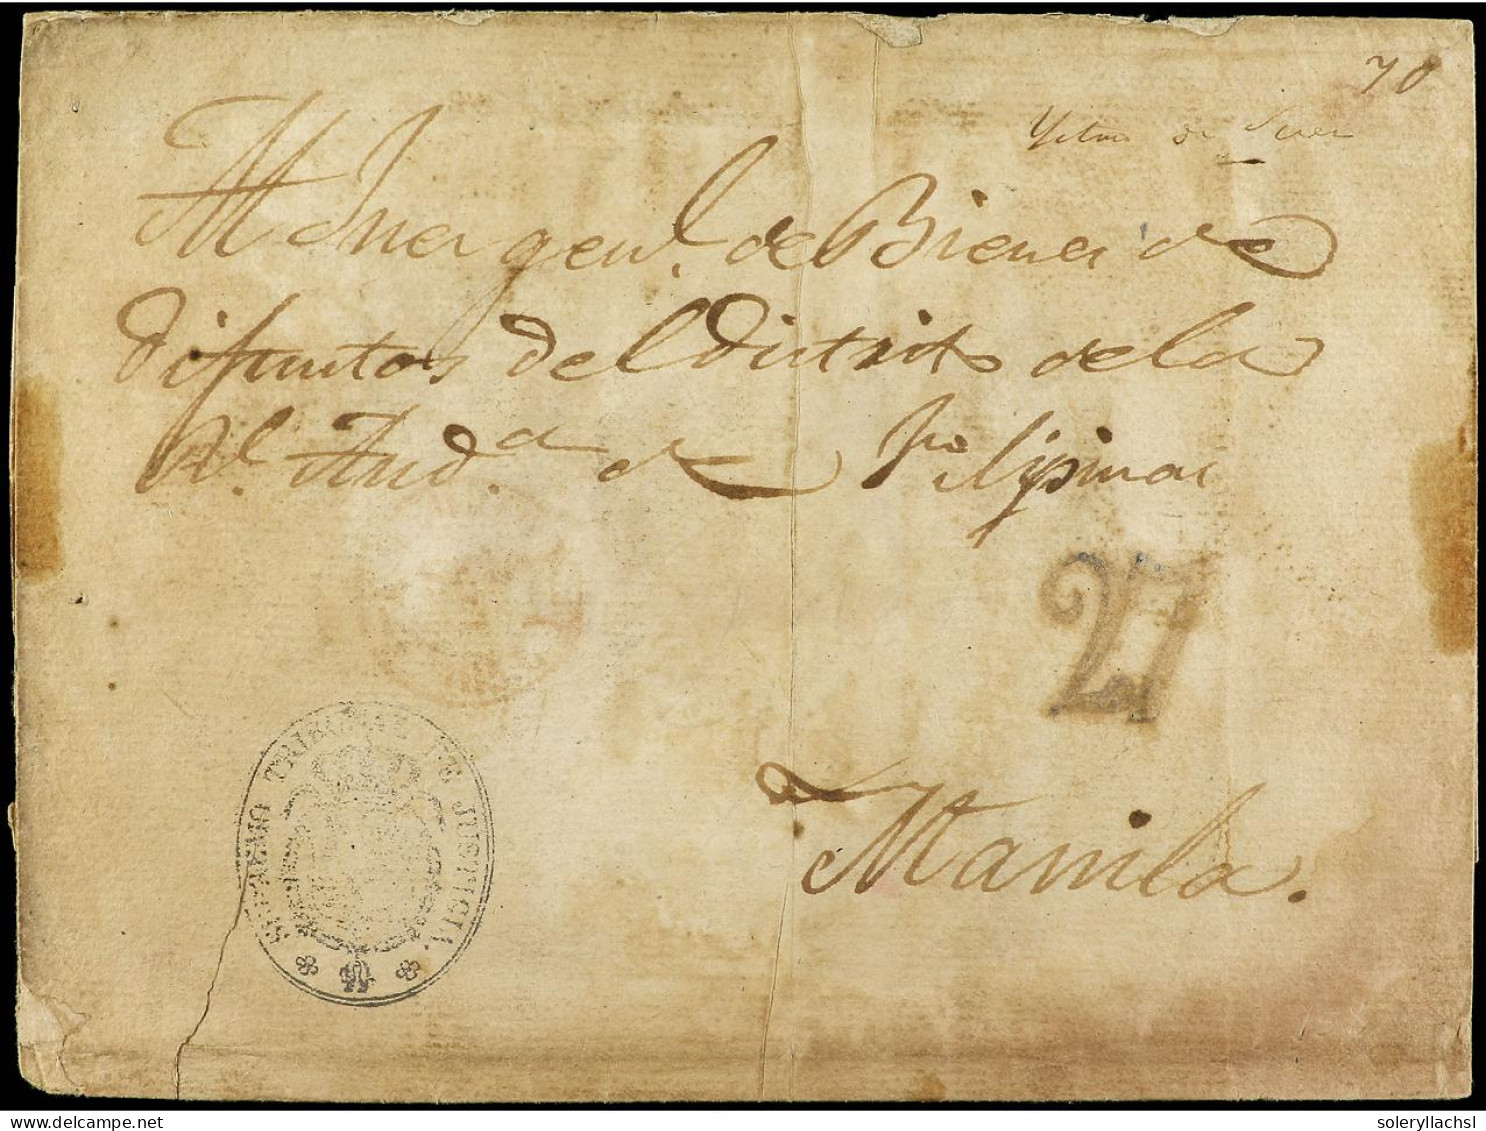 70
Ystmo de Suez
Al Juez genl. de Bienes de
difuntos del distrito de la
Rl. Auda. de Filipinas
27
Manila.
SUPREMO TRIBUNAL DE JUSTICIA.
soleryllachs|